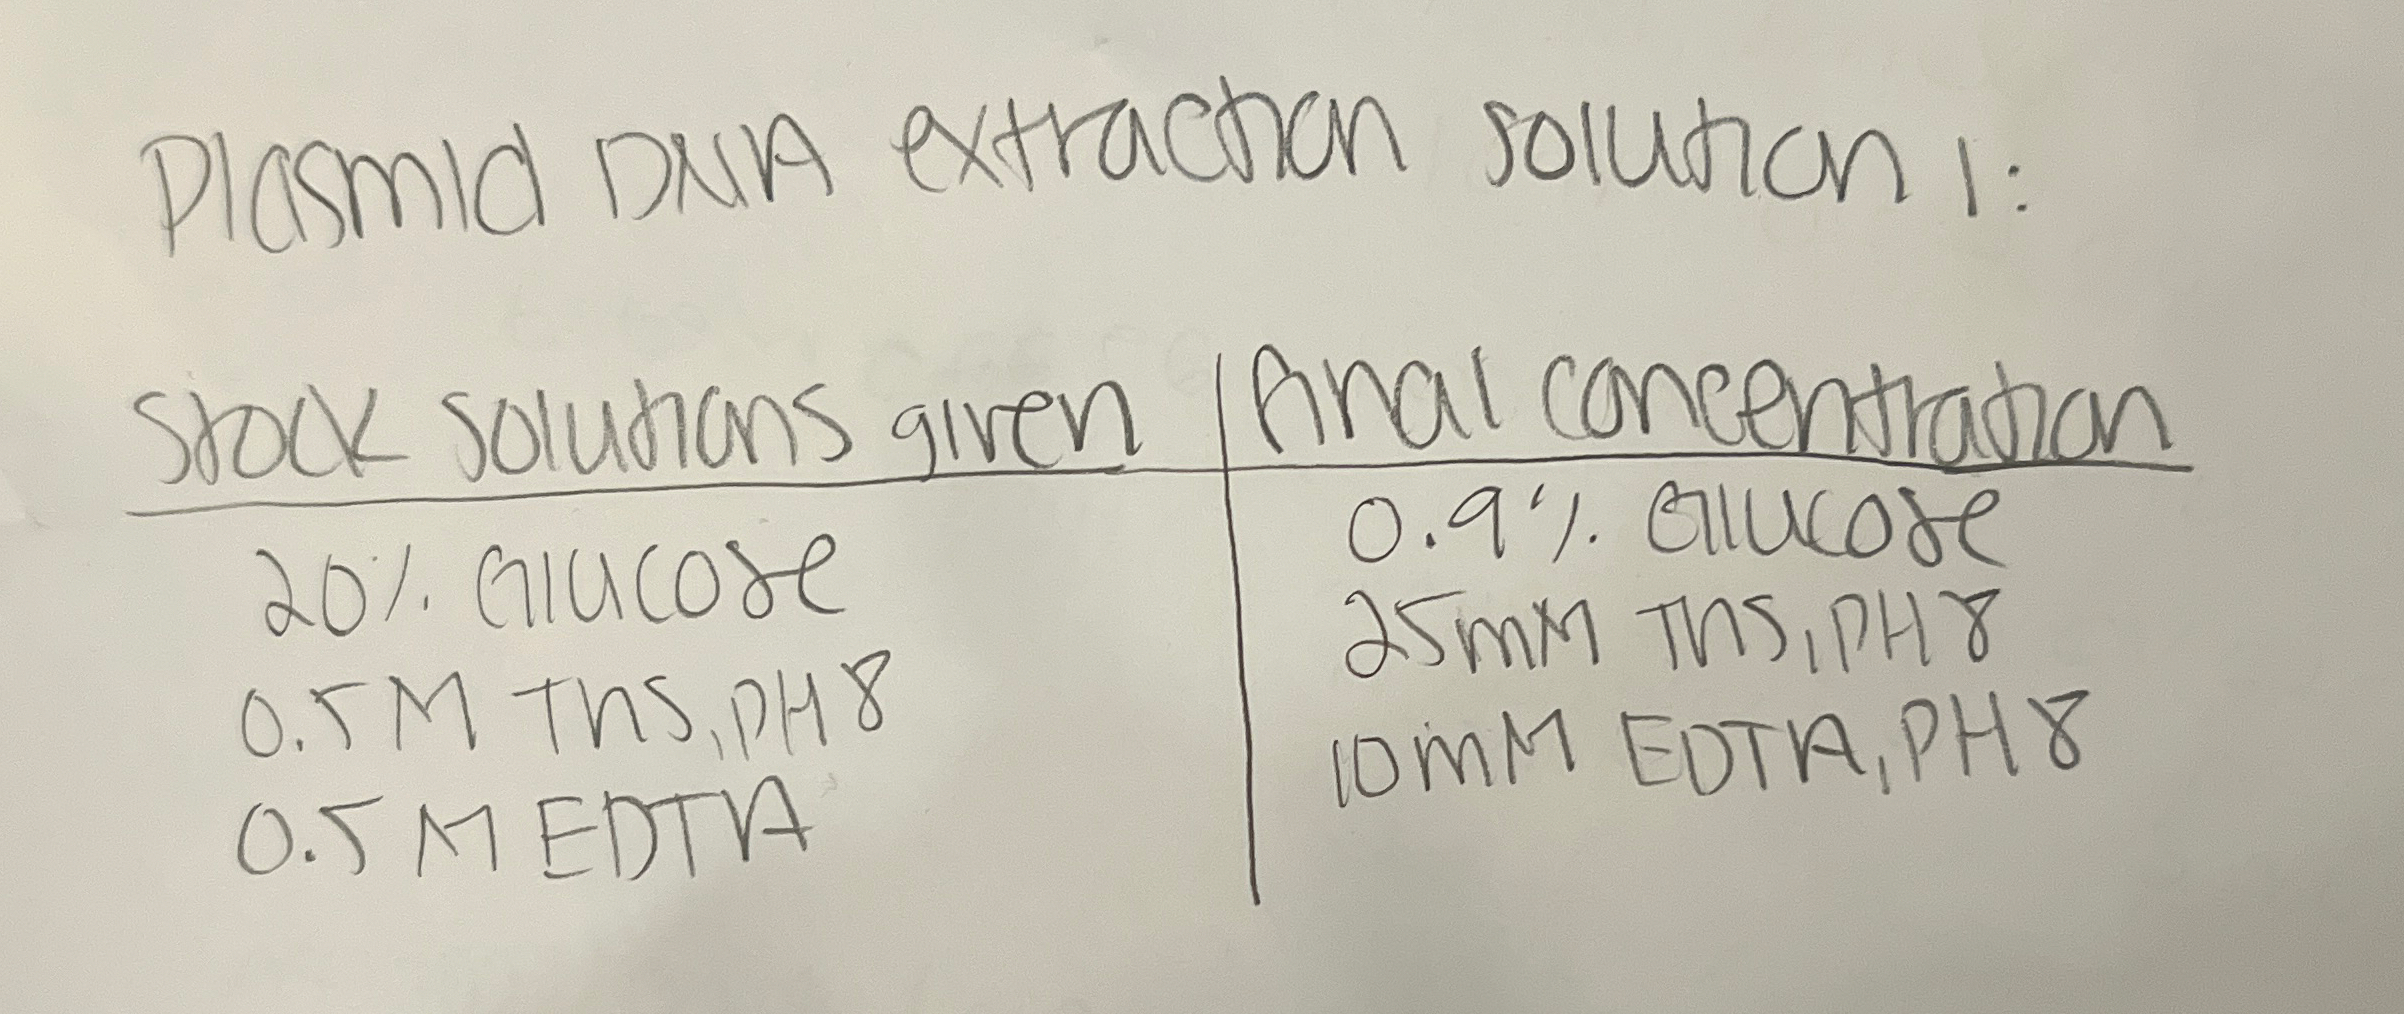 Plasmid DNA extraction solution 1:
Stock solutions given | final concentration
20% Glucose | 0.9% Glucose
0.5M Tris, pH 8 | 25mM Tris, pH 8
0.5M EDTA | 10mM EDTA, pH 8